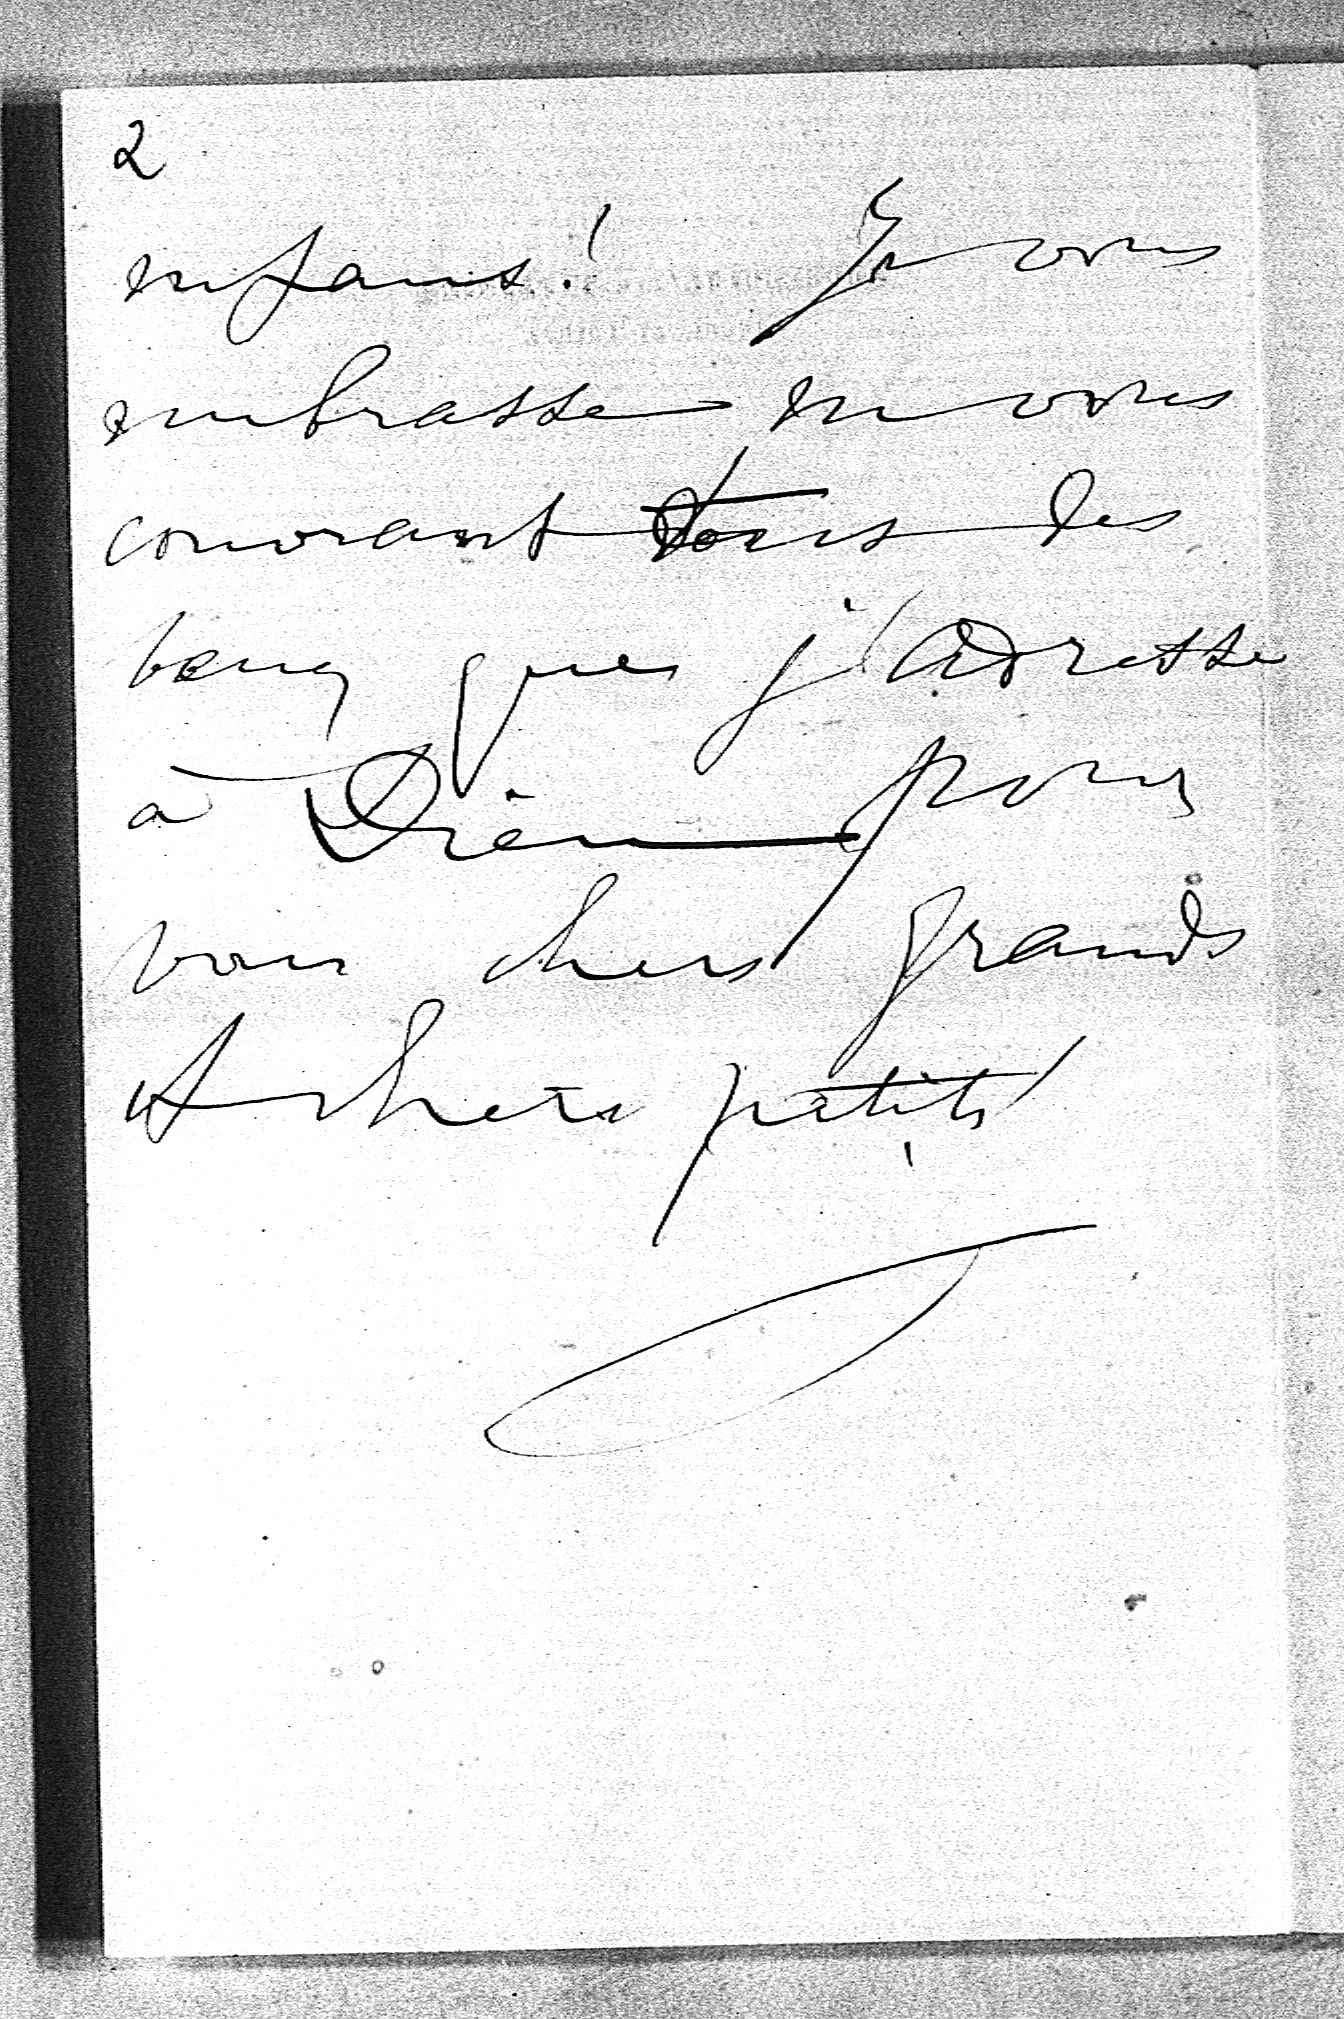 2
enfants! Je vous
embrasse en vous
couvrant tous des
vœux que j'adresse
à Dieu pour
vous chers grands
et chers petits!